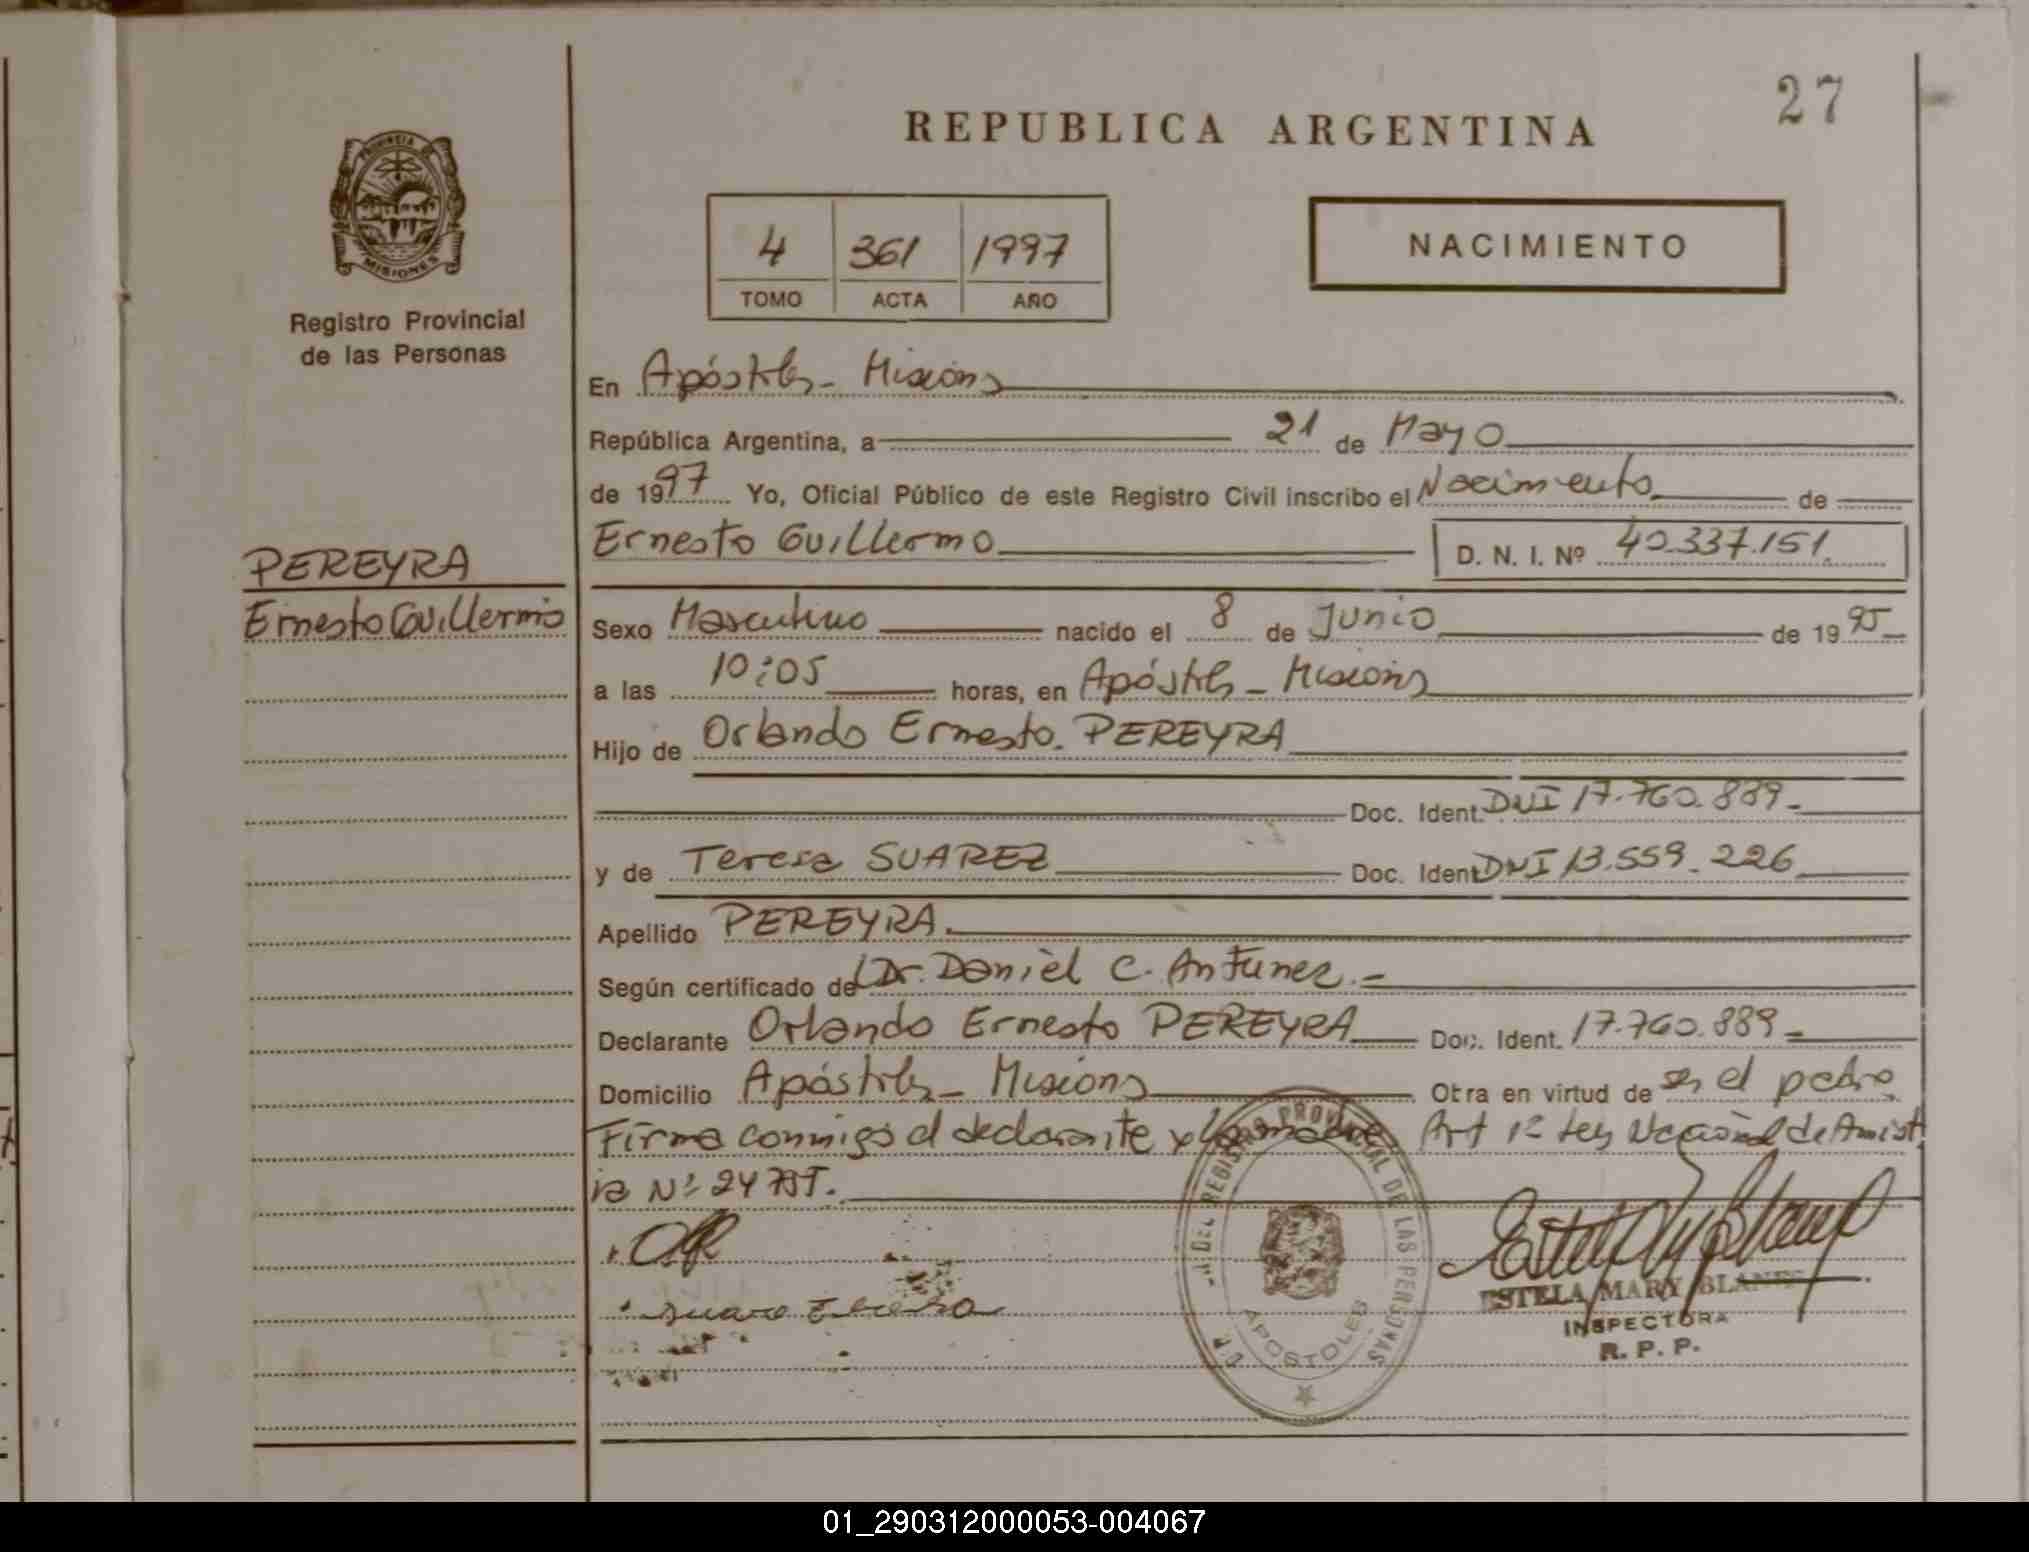 27
REPUBLICA ARGENTINA
PROVINCIA DE
MISIONES
Registro Provincial
de las Personas
4 361 1997
TOMO ACTA AÑO
NACIMIENTO
En Apóstoles - Misiones
República Argentina, a 21 de Mayo
de 1997 Yo, Oficial Público de este Registro Civil inscribo el Nacimiento de
Ernesto Guillermo D. N. I. Nº 40.337.151.
PEREYRA
Ernesto Guillermo
Sexo Masculino nacido el 8 de Junio de 1995
a las 10:05 horas, en Apóstoles - Misiones
Hijo de Orlando Ernesto. PEREYRA
Doc. Ident. DNI 17.760.889-
y de Teresa SUAREZ Doc. Ident DNI 13.559.226
Apellido PEREYRA.
Según certificado de Dr. Daniel C. Antunez.-
Declarante Orlando Ernesto PEREYRA Doc. Ident. 17.760.889-
Domicilio Apóstoles - Misiones Otra en virtud de ser el padre
Firma conmigo el declarante y la madre Art 1º Ley Nacional de Amist
ia Nº 24755.
DEL REGISTRO PROVINCIAL DE LAS PERSONAS
APOSTOLES
ESTELA MARY BLANES
INSPECTORA
R. P. P.
01_290312000053-004067